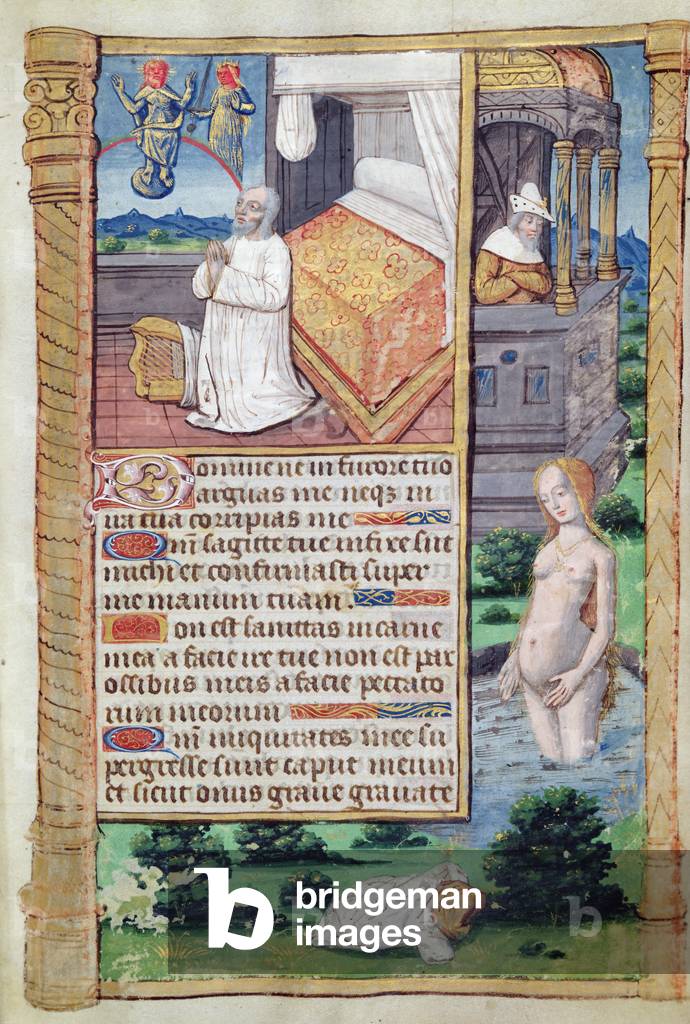 Domine ne in furore tuo
arguas me neqz in
ira tua corripias me
Qm sagitte tue infixe sut
michi et confirmasti super
me manum tuam.
Non est sanitas in carne
mea a facie ire tue non est pax
ossibus meis a facie peccato
rum meorum
Qm iniquitates mee su
pergresse sunt caput meum
et sicut onus graue grauate
bridgeman
images